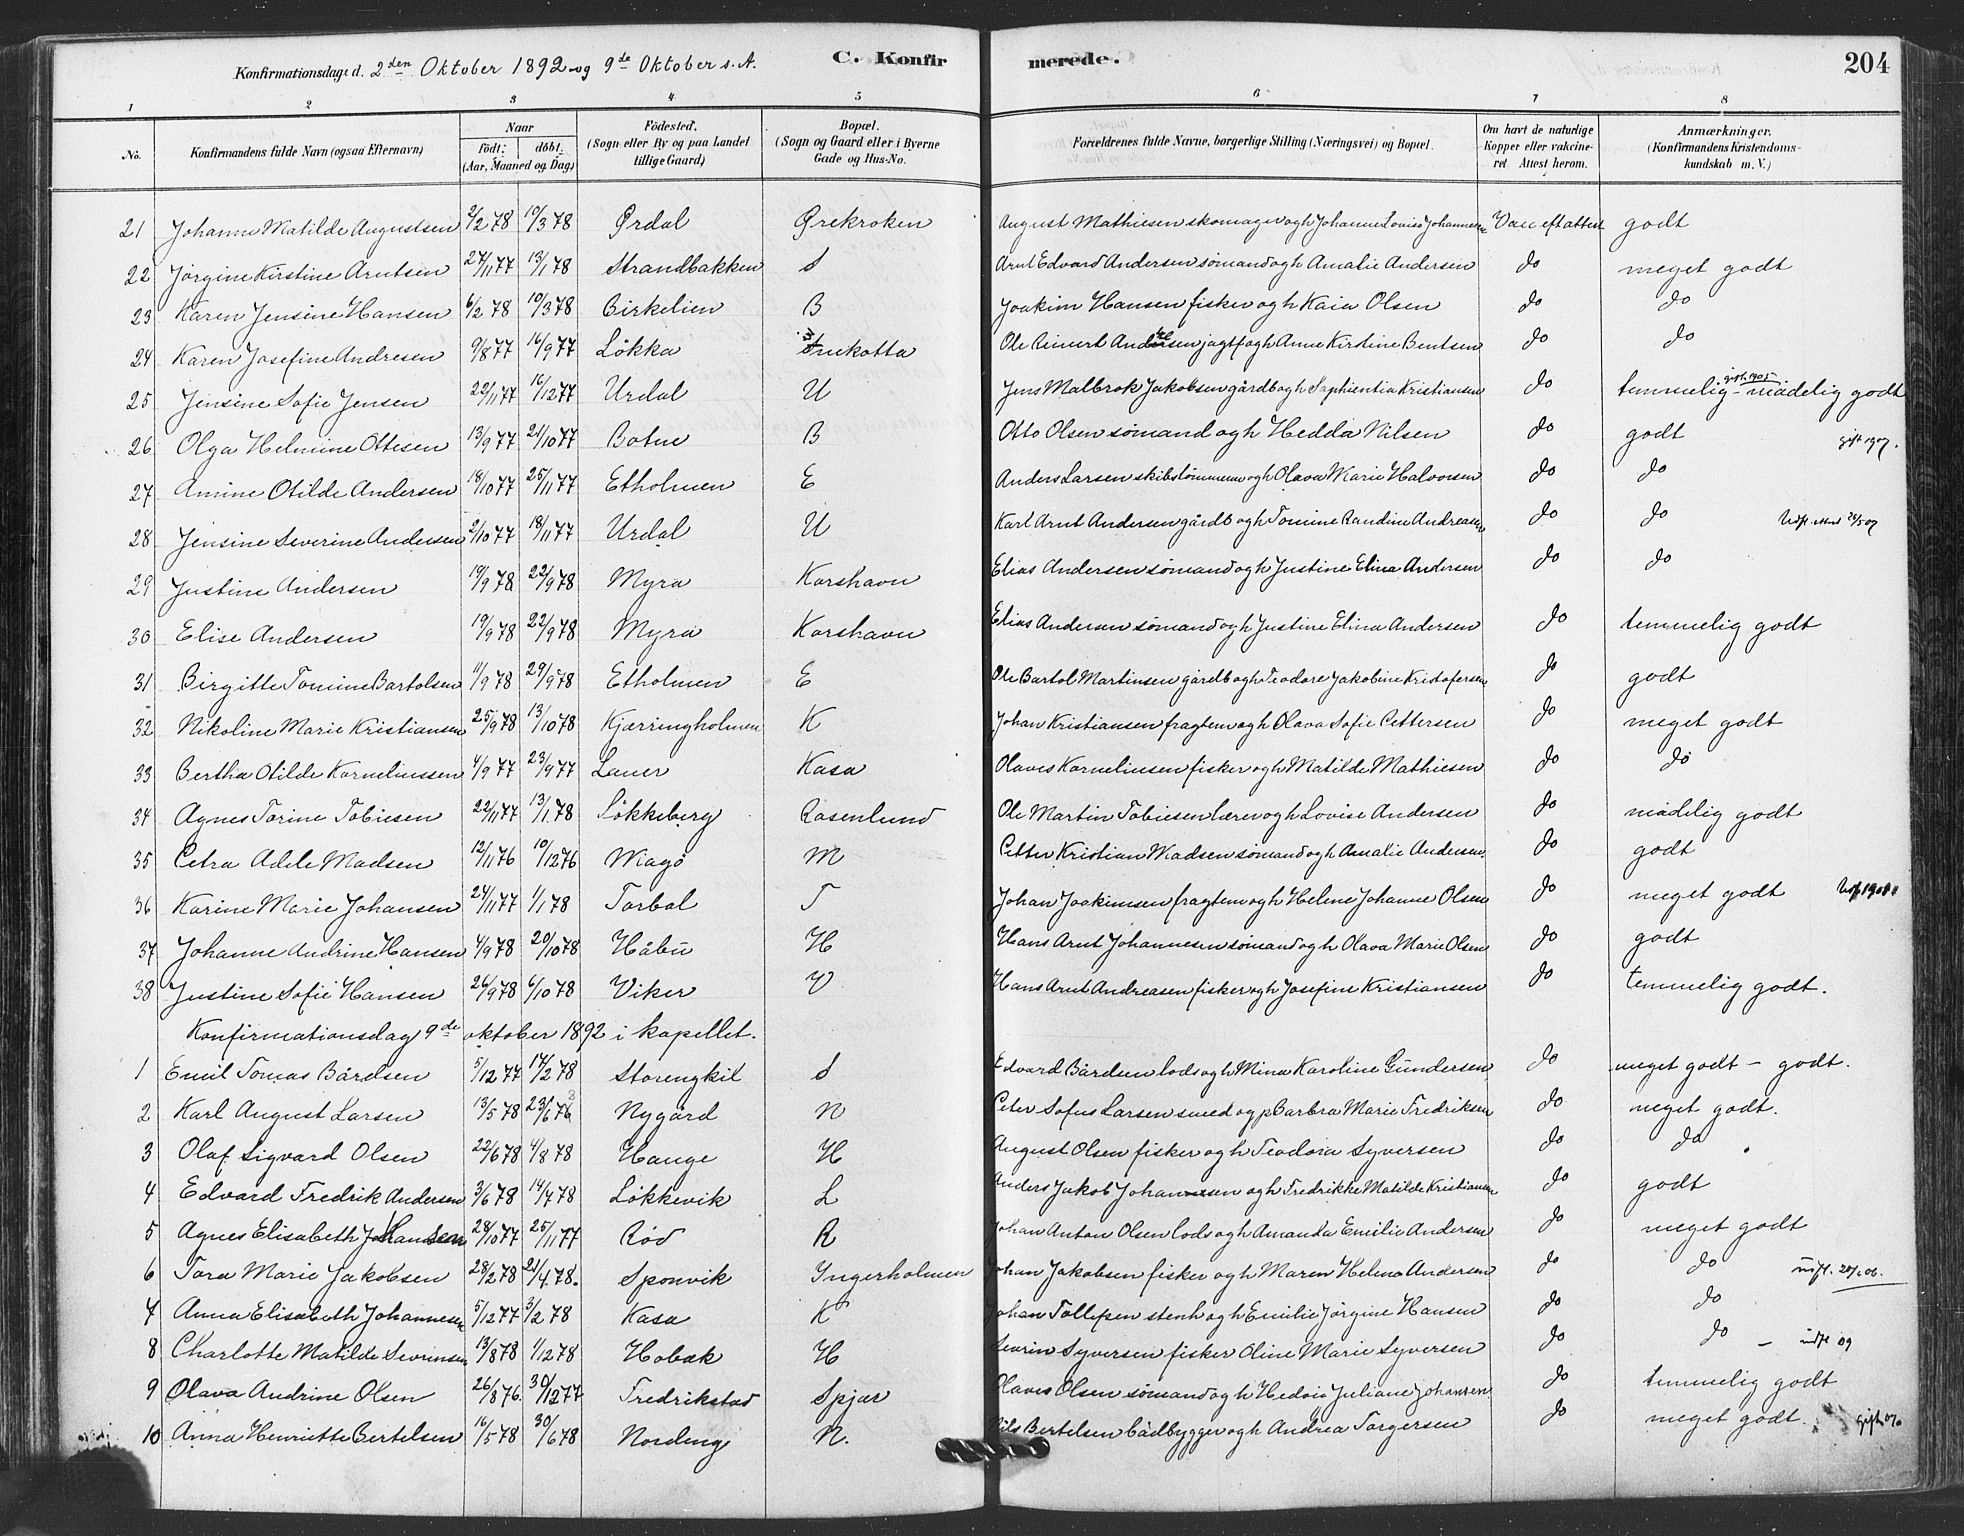 Konfirmationsdage d. 2den Oktober 1892 og 9de Oktober s. A. C. Konfirmerede. 204
1 2 3 4 5 6 7 8
No. Konfirmandens fulde Navn (ogsaa Efternavn) Naar født: døbt: (Aar, Maaned og Dag) Fødested. (Sogn eller By og paa Landet tillige Gaard) Bopæl. (Sogn og Gaard eller i Byerne Gade og Hus-No. Forældrenes fulde Navne, borgerlige Stilling (Næringsvei) og Bopæl. Om havt de naturlige Kopper eller vakcineret. Attest herom. Anmærkninger. (Konfirmandens Kristendomskundskab m. V.)
21 Johanne Matilde Augustsen 2/2 78 10/3 78 Ørdal Ørekroken August Mathiesen skomager og h Johanne Lovise Johannesen Vacc eft attest godt
22 Jørgine Kirstine Arntsen 27/11 77 13/1 78 Strandbakken S Arnt Edvard Andersen sømand og h Amalie Andersen do meget godt
23 Karen Jensine Hansen 6/2 78 10/3 78 Birkelien B Joakim Hansen fisker og h Kaia Olsen do do
24 Karen Josefine Andresen 9/8 77 16/9 77 Løkka Ole Reinert Andresen jagtf og h Anne Kirstine Bentsen do do
25 Jensine Sofie Jensen 22/11 77 16/12 77 Urdal U Jens Malbrok Jakobsen gårdb og h Saphientia Kristiansen do temmelig - mådelig godt gift 1905
26 Olga Helmine Ottesen 13/9 77 21/10 77 Botne B Otto Olsen sømand og h Hedda Nilsen do godt gift 1907.
27 Amine Otilde Andersen 18/10 77 25/11 77 Etholmen E Anders Larsen skibstømmerm og h Olava Marie Halvorsen do do
28 Jensine Severine Andersen 2/10 77 18/11 77 Urdal U Karl Arnt Andersen gårdb og h Tomine Randine Andreasen do do
29 Justine Andersen 19/9 78 22/9 78 Myra Korshavn Elias Andersen sømand og h Justine Elina Andersen do do
30 Elise Andersen 19/9 78 22/9 78 Myra Korshavn Elias Andersen sømand og h Justine Elina Andersen do temmelig godt
31 Birgitte Tomine Bartolsen 11/9 78 29/9 78 Etholmen E Ole Bartol Martinsen gårdb og h Teodore Jakobine Kristofersen do godt
32 Nikoline Marie Kristiansen 25/9 78 13/10 78 Kjærringholmen K Johan Kristiansen fragtem og h Olava Sofie Pettersen do meget godt
33 Bertha Otilde Korneliussen 4/9 77 23/9 77 Lauer Kasa Olaves Korneliusen fisker og h Matilde Mathiesen do do
34 Agnes Torine Tobiesen 22/11 77 13/1 78 Løkkeberg Rosenlund Ole Martin Tobiesen lærer og h Lovise Andersen do mådelig godt
35 Petra Adele Madsen 12/11 76 10/12 76 Magø M Petter Kristian Madsen sømand og h Amalie Andersen do godt
36 Karine Marie Johansen 24/11 77 1/1 78 Torbal T Johan Joakimsen fragtem og h Helene Johanne Olsen do meget godt
37 Johanne Andrine Hansen 4/9 78 20/10 78 Håbu H Hans Arnt Johannesen sømand og h Olava Marie Olsen do godt
38 Justine Sofie Hansen 26/9 78 6/10 78 Viker V Hans Arnt Andreasen fisker og h Josefine Kristiansen do temmelig godt.
Konfirmationsdag 9de oktober 1892 i kapellet.
1 Emil Tomas Bårdsen 5/12 77 17/2 78 Storengkil S Edvard Bårdsen lods og h Mina Karoline Gundersen do meget godt - godt.
2 Karl August Larsen 13/5 78 23/6 78 Nygård N Peter Sofus Larsen smed og p Barbra Marie Fredriksen do meget godt.
3 Olaf Sigvard Olsen 22/6 78 4/8 78 Hauge H August Olsen fisker og h Teodora Syversen do do
4 Edvard Fredrik Andersen 3/6 78 14/7 78 Løkkevik L Anders Jakob Johannesen og h Fredrikke Matilde Kristiansen do godt
5 Agnes Elisabeth Johansen 28/10 77 25/11 77 Rød R Johan Anton Olsen lods og h Amanda Emilie Andersen do meget godt
6 Tora Marie Jakobsen 28/2 78 21/4 78. Sponvik Ingerholmen Johan Jakobsen fisker og h Maren Helena Andersen do do
7 Anna Elisabeth Johannesen 5/12 77 3/2 78 Kasa K Johan Tollefsen stenh og h Emilie Jørgine Hansen do do
8 Charlotte Matilde Sevrinsen 13/8 78 1/12 78 Hobak H Sevrin Syversen fisker Oline Marie Syversen do do - 09
9 Olava Andrine Olsen 26/8 76. 30/12 77 Fredrikstad Spjær Olaves Olsen sømand og h Hedvig Juliane Johansen do temmelig godt
10 Anna Henriette Bertelsen 16/5 78 30/6 78 Nordeng N. Nils Bertelsen bådbygger og h Andrea Torgersen do meget godt.